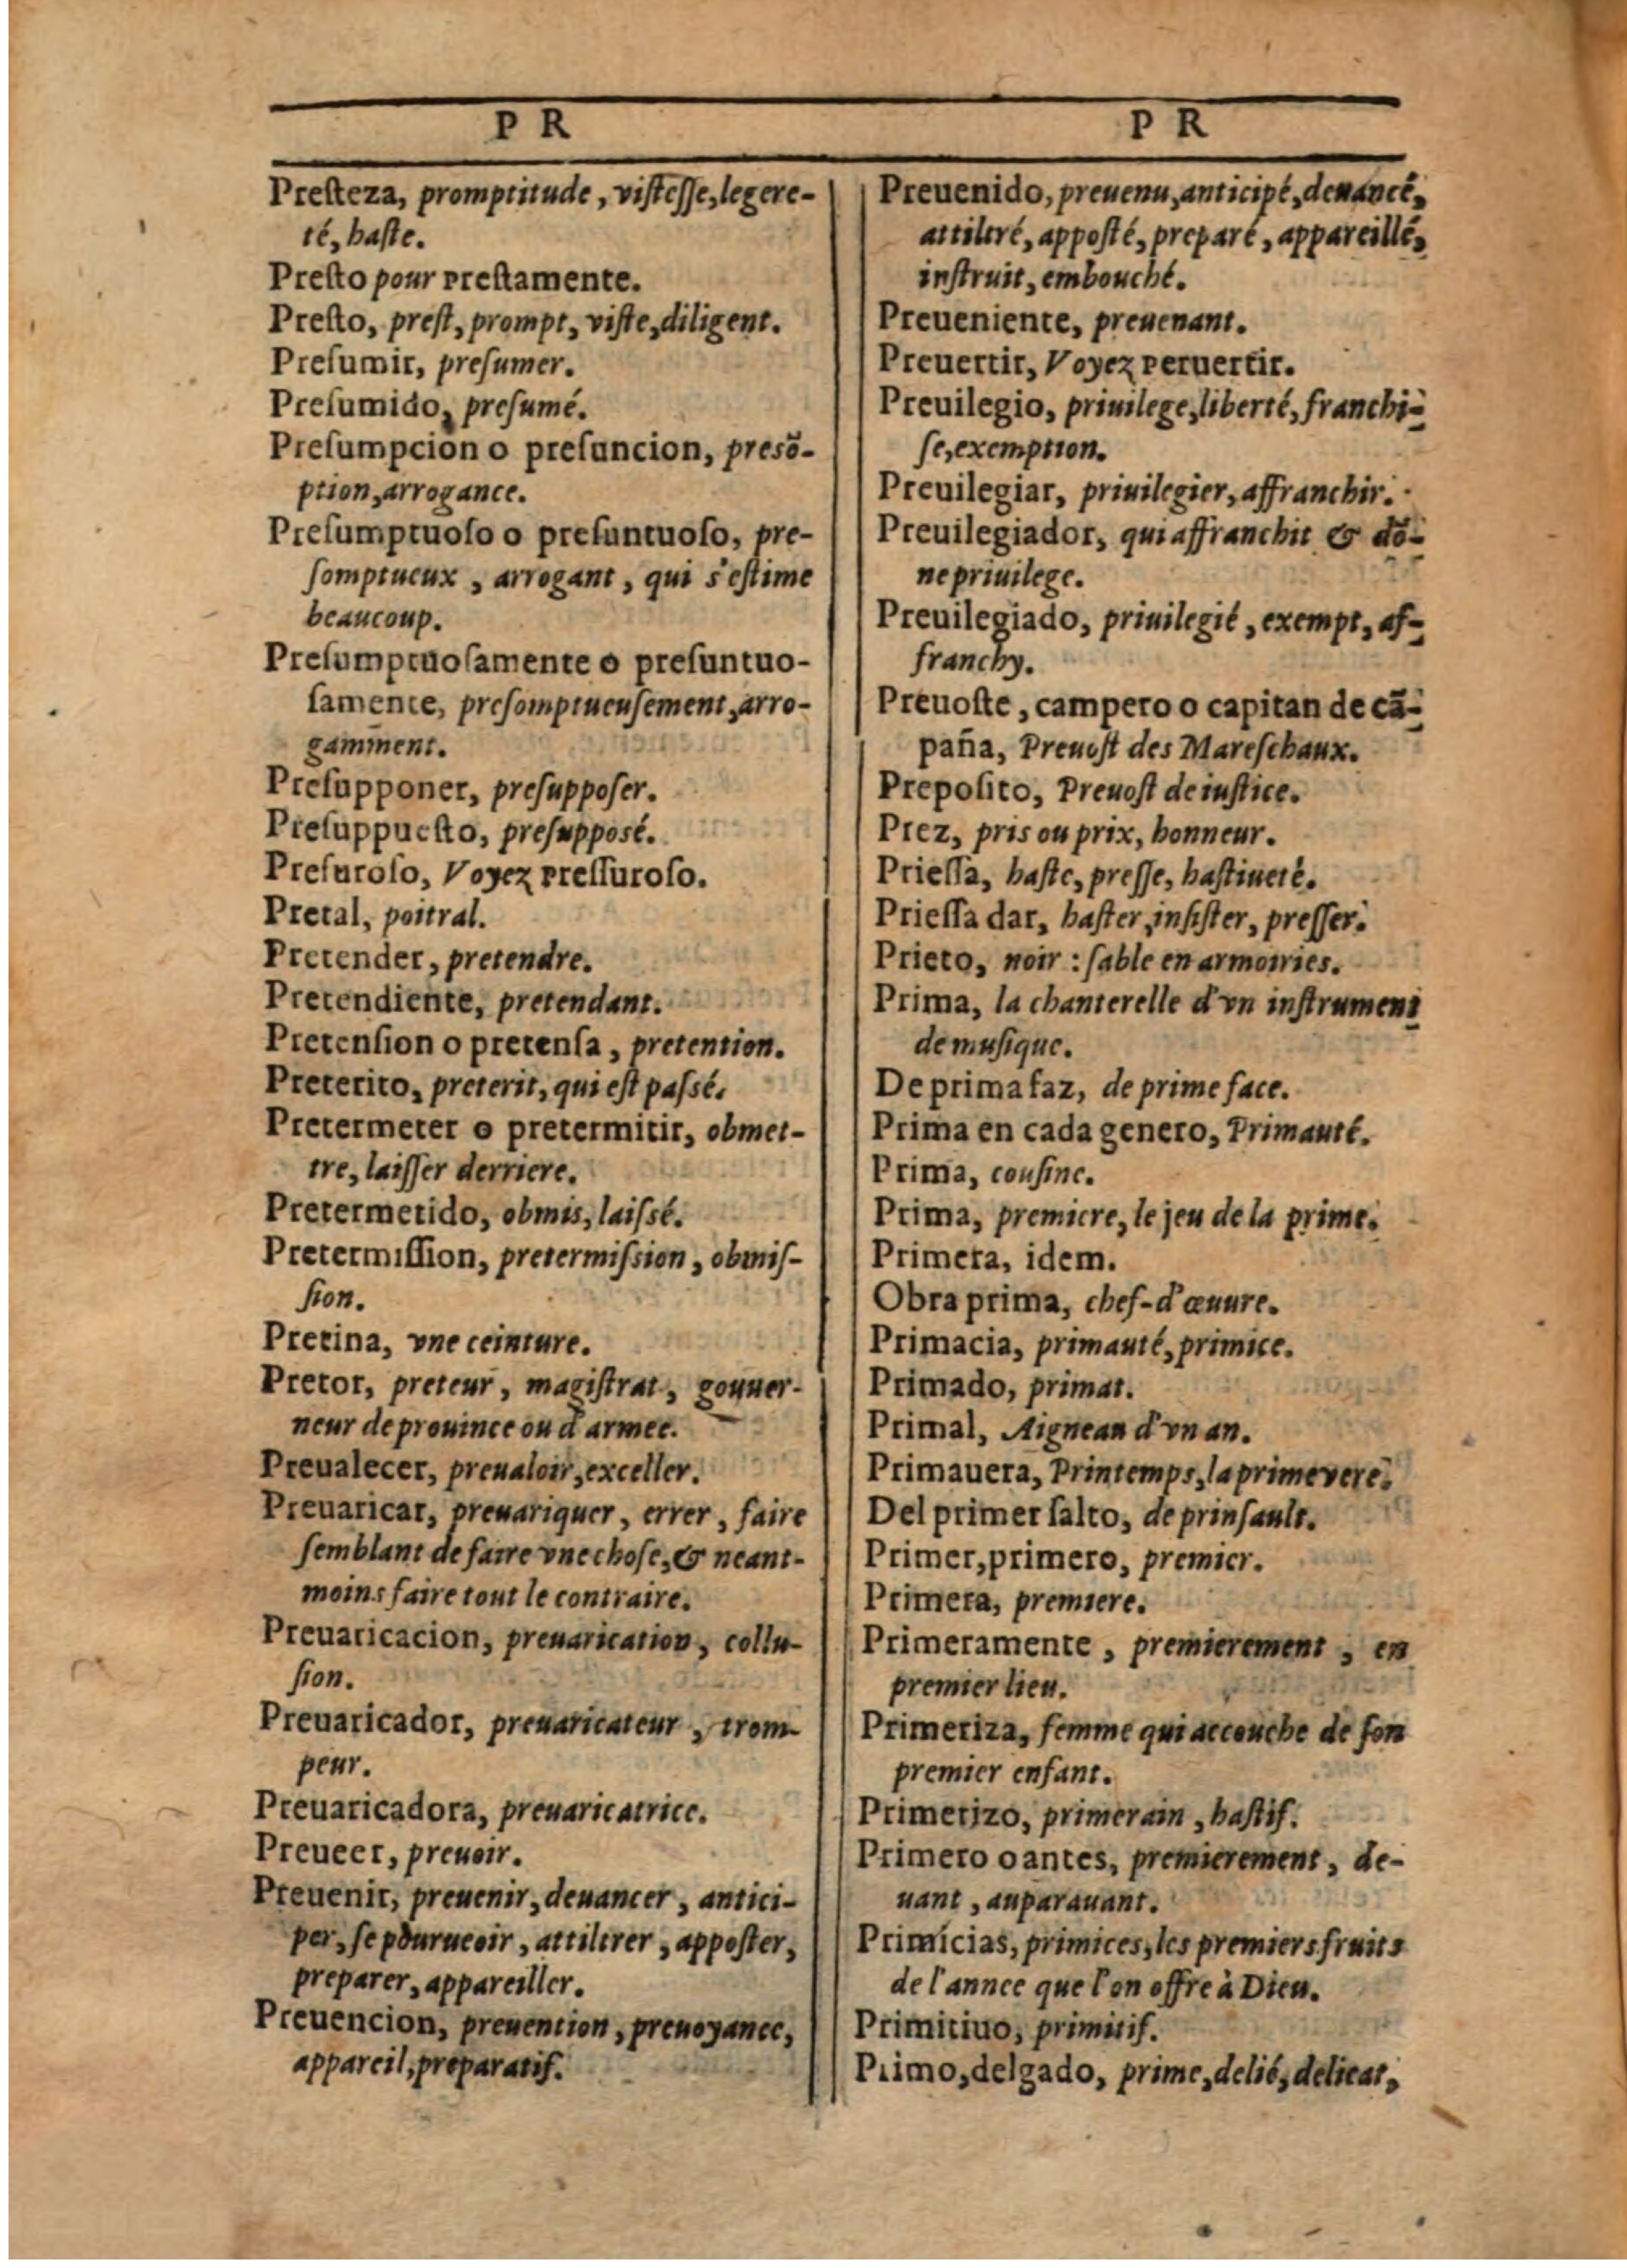 P R
Preſteza, promptitude, viſteſſe, legere-
té, haſte.
Preſto pour Preſtamente.
Preſto, preſt, prompt, viſte, diligent.
Preſumir, preſumer.
Preſumido, preſumé.
Preſumpcion o preſuncion, presõ-
ption, arrogance.
Preſumptuoſo o preſuntuoſo, pre-
ſomptueux, arrogant, qui s'eſtime
beaucoup.
Preſumptuoſamente o preſuntuo-
ſamente, preſomptueuſement, arro-
gamment.
Preſupponer, preſuppoſer.
Preſuppueſto, preſupposé.
Preſuroſo, Voyez Preſſuroſo.
Pretal, poitral.
Pretender, pretendre.
Pretendiente, pretendant.
Pretenſion o pretenſa, pretention.
Preterito, preterit, qui eſt paſsé.
Pretermeter o pretermitir, obmet-
tre, laiſſer derriere.
Pretermetido, obmis, laiſsé.
Pretermiſſion, pretermiſsion, obmiſ-
ſion.
Pretina, vne ceinture.
Pretor, preteur, magiſtrat, gouuer-
neur de prouince ou d'armee.
Preualecer, preualoir, exceller.
Preuaricar, preuariquer, errer, faire
ſemblant de faire vne choſe, & neant-
moins faire tout le contraire.
Preuaricacion, preuarication, collu-
ſion.
Preuaricador, preuaricateur, trom-
peur.
Preuaricadora, preuaricatrice.
Preueer, preuoir.
Preuenir, preuenir, deuancer, antici-
per, ſe pourueoir, attiltrer, appoſter,
preparer, appareiller.
Preuencion, preuention, preuoyance,
appareil, preparatif.
P R
Preuenido, preuenu, anticipé, deuancé,
attiltré, appoſté, preparé, appareillé,
inſtruit, embouché.
Preueniente, preuenant.
Preuertir, Voyez Peruertir.
Preuilegio, priuilege, liberté, franchi-
ſe, exemption.
Preuilegiar, priuilegier, affranchir.
Preuilegiador, qui affranchit & dõ-
ne priuilege.
Preuilegiado, priuilegié, exempt, af-
franchy.
Preuoſte, campero o capitan de cã-
paña, Preuoſt des Mareſchaux.
Prepoſito, Preuoſt de iuſtice.
Prez, pris ou prix, honneur.
Prieſſa, haſte, preſſe, haſtiueté.
Prieſſa dar, haſter, inſiſter, preſſer.
Prieto, noir : ſable en armoiries.
Prima, la chanterelle d'vn inſtrument
de muſique.
De prima faz, de prime face.
Prima en cada genero, Primauté.
Prima, couſine.
Prima, premiere, le jeu de la prime.
Primera, idem.
Obra prima, chef-d'œuure.
Primacia, primauté, primice.
Primado, primat.
Primal, Aigneau d'vn an.
Primauera, Printemps, la primevere.
Del primer ſalto, de prinſault.
Primer, primero, premier.
Primera, premiere.
Primeramente, premierement, en
premier lieu.
Primeriza, femme qui accouche de ſon
premier enfant.
Primerizo, primerain, haſtif.
Primero o antes, premierement, de-
uant, auparauant.
Primícias, primices, les premiers fruits
de l'annee que l'on offre à Dieu.
Primitiuo, primitif.
Primo, delgado, prime, delié, delicat,